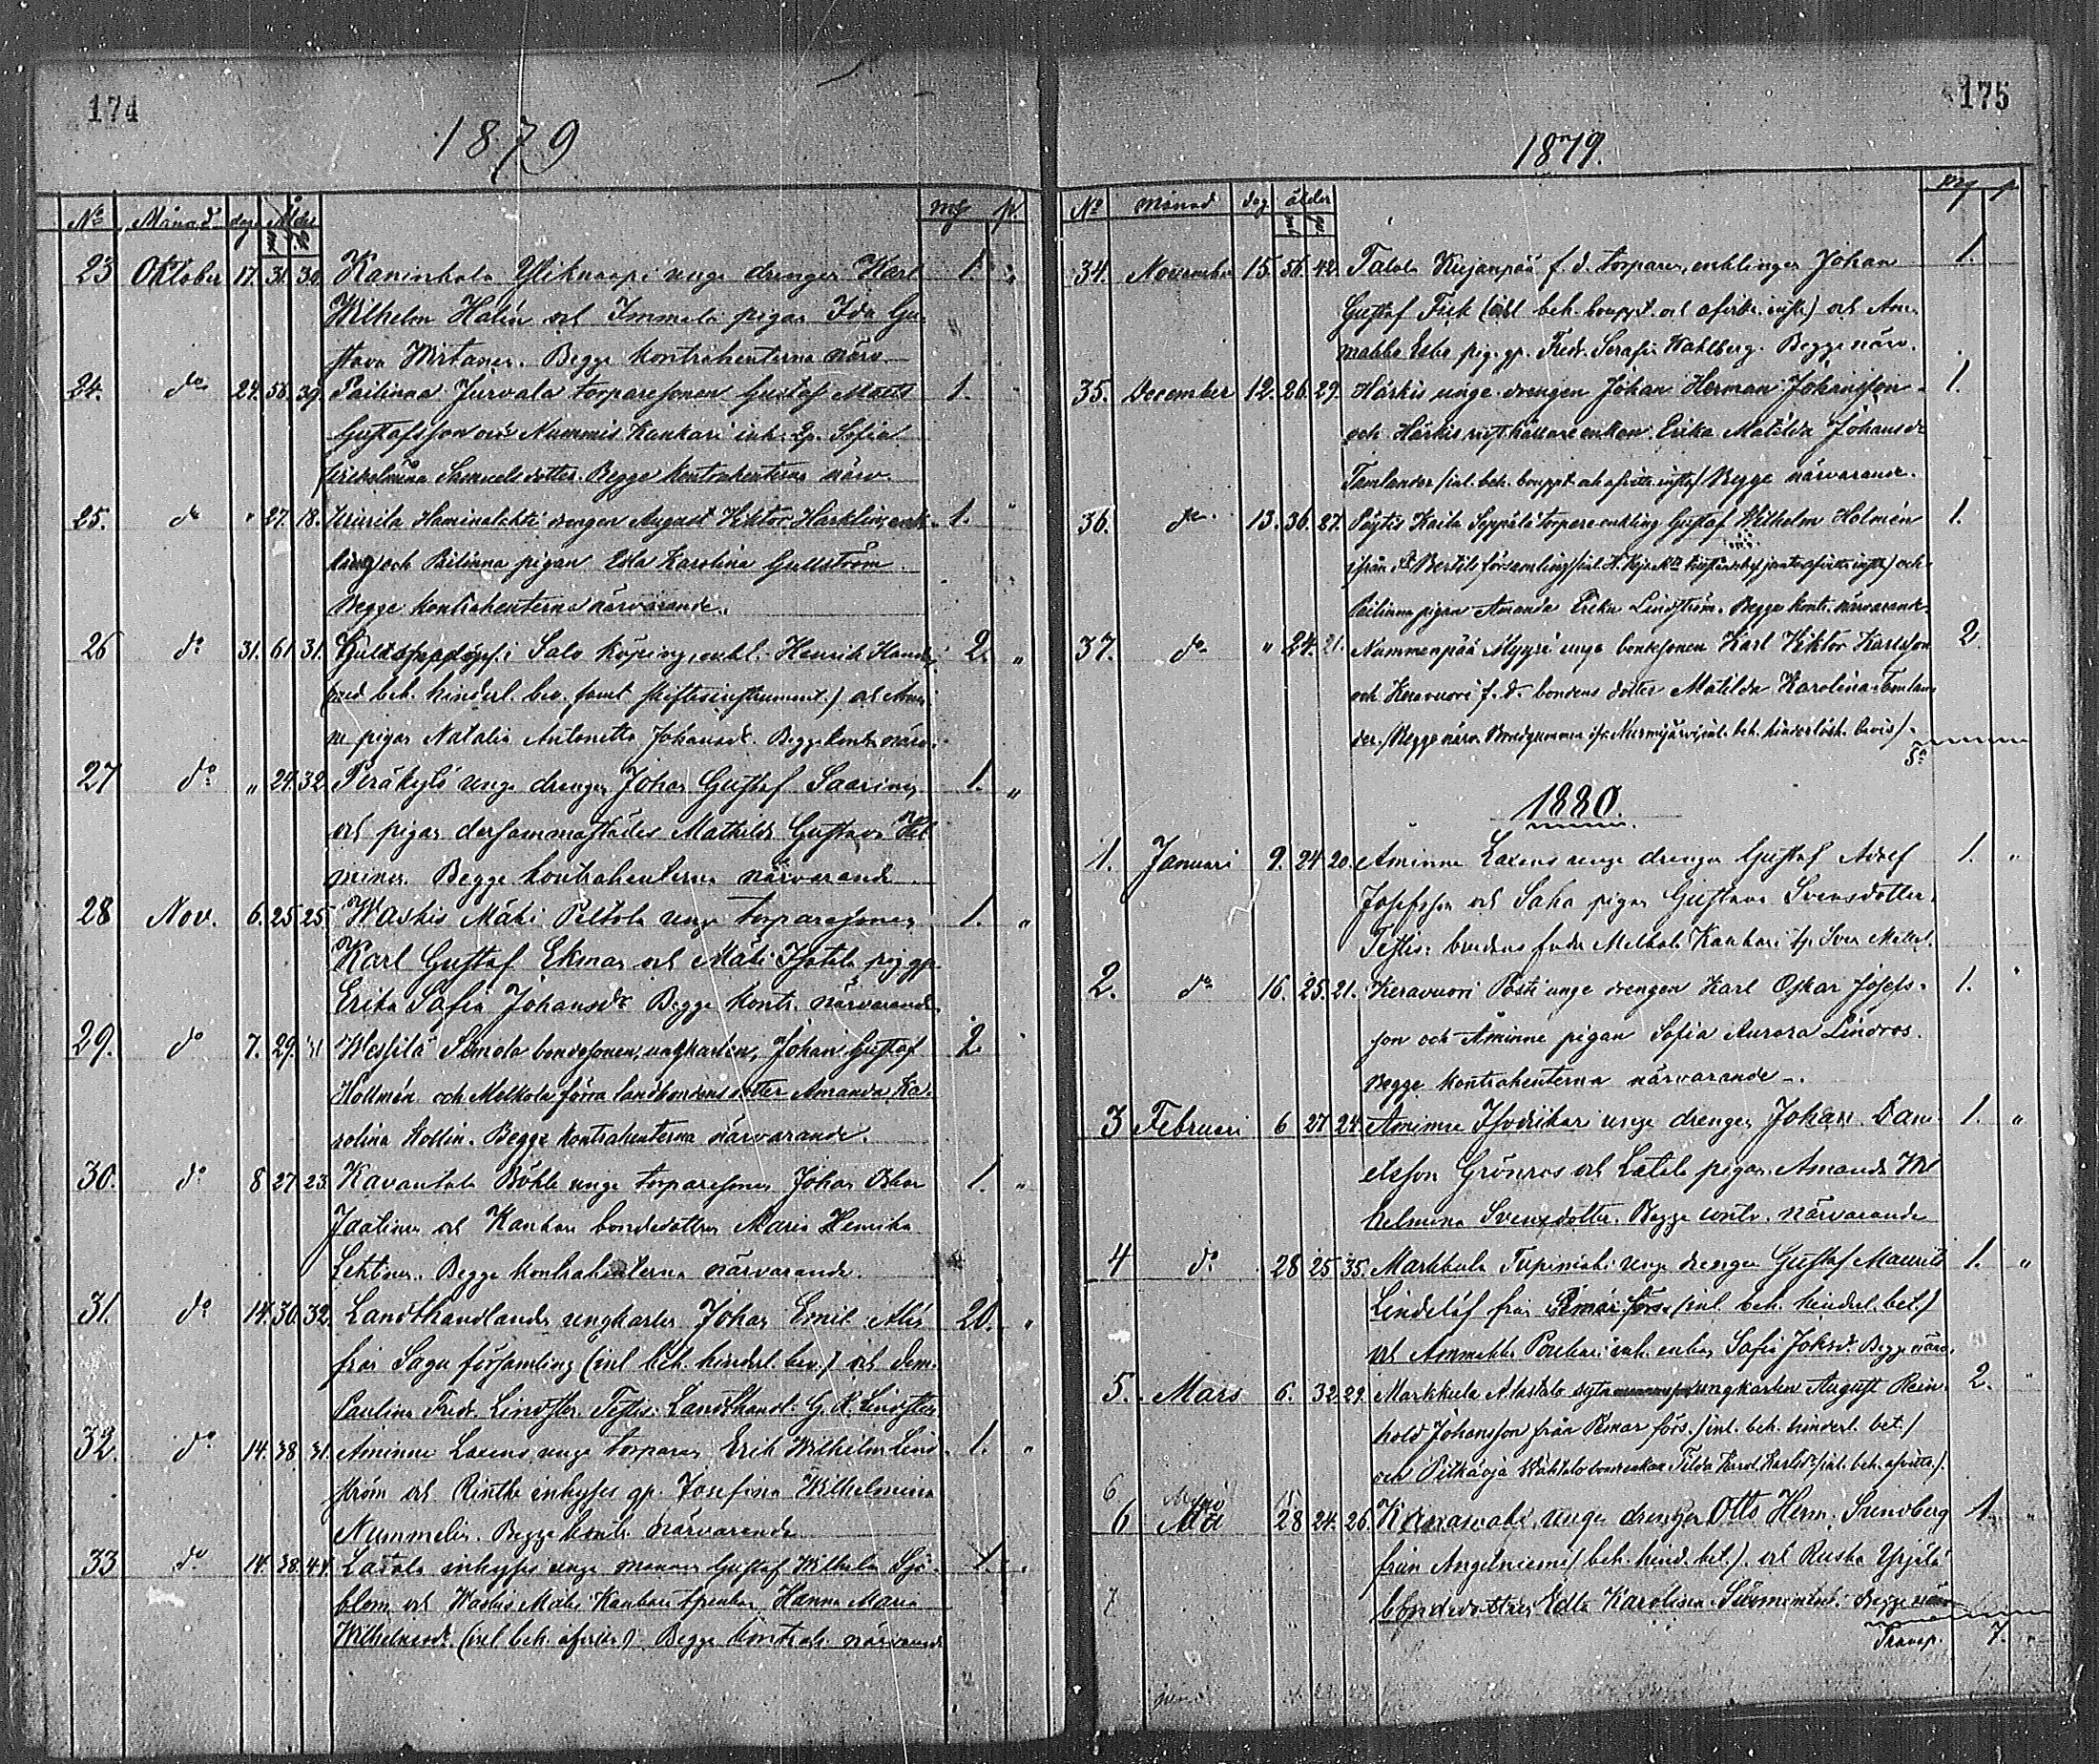 174
1879
No Månad dag Ålder mg p.
23 Oktober 17. 31. 30. Kaninkola Yliknaapi unge drengen Karl 1. "
Wilhelm Halin och Immala pigan Ida Gu-
stava Wirtanen. Begge kontrahenterna närv
24. do 24. 56. 39. Pailinna Jurvala torparesonen Gustaf Matts 1.
Gustafsson och Nummis Kankari inh. Sofia
Wilhelmina Samuelsdotter. Begge kontrahenterna närv.
25. do " 27. 18. Haminalahti drengen August Viktor Harklin, enk- 1. "
ling och Pailinna pigan Edla Karolina Gullström
Begge kontrahenterna närvarande.
26 do 31. 61 31. i Salo köping, enkl. Henrik 2. "
(med beh. hinderl. bev. samt skiftesinstrument.) och
pigan Natalia Antonetta Johansdr. Begge kontr. närv.
27 do " 24. 32. Peräkylä unge drengen Johan Gustaf Saarinen 1. "
och pigan dersammastädes Mathilda Gustava
Begge kontrahenterna närvarande
28 Nov. 6. 25 25. Waskis Mäki Peltola unge torparesonen 1. "
Karl Gustaf Ekman och Mäki Isotalo pig. gp.
Erika Sofia Johansdr Begge kontr. närvarande.
29. do 7. 29. 31 Wessilä Simola bondesonen, ungkarlen, Johan Gustaf 2
Hollmén och Melkola förra landbondens dotter Amanda Ka-
rolina Kollin. Begge kontrahenterna närvarande.
30. do 8 27. 23. Kavantola Böhle unge torparesonen Johan Oskar 1. "
Jaatinen och Kankare bondedottren Maria Henrika
Lehtinen. Begge kontrahenterna närvarande.
31. do 14. 30. 32. Landthandlanden ungkarlen Johan Emil Alén 20. "
från Sagu församling (inl. beh. hinderl. bev.) och Dem.
Paulina Fred. Lindstén. Testis: Landthandl. G. R. Lindstén
32. do 14. 38. 31. Åminne Laxens unge torparen Erik Wilhelm Lind- 1. "
ström och Rinthe inhyses gp. Josefina Wilhelmina
Nummelin. Begge kontr. närvarande
33 do 14. 38. 44. Latola inhyses unge mannen Gustaf Wilhelm Sjö- 1.
blom och Waskis Mäki Kankari Hanna Maria
Wilhelmsdr. (inl. beh. afvitt.) Begge kontrah. närvarande
175
1879.
No Månad dag ålder mg p
34. November 15. 56. 42. Talola Kujanpää f. d. torparen, enklingen Johan 1.
Gustaf Fisk (inl. beh. bouppt. och afvittr. instr.) och Am-
mabba Esba pig. gp. Fredr. Serafia Wahlberg. Begge närv.
35. December 12. 26. 29. Härkis unge drengen Johan Herman Johansson 1.
och Härkis rusthållare enkan Erika Matilda Johansdr
Tamlander (inl. beh. bouppt. och afvittr. instr.) Begge närvarande.
36. do 13. 36. 27. Pöytis Kaila Seppälä torpare enkling Gustaf Wilhelm Holmén 1.
ifrån St Bertils församling och
Pailinna pigan Amanda Erika Lindström. Begge kontr. närvarande.
37. do " 24. 21. Nummenpää Myyri unge bondesonen Karl Viktor Karlsson 2
och Keravuori f. d. bondens dotter Matilda Karolina Tamlan-
der. (Begge närv. Brudgummen ifr. Nurmijärvi, inl. beh. hinderlösh. bevis).
Sa
1880.
1. Januari 9. 24 20. Åminne Laxens unge drengen Gustaf Adolf 1. "
Josefsson och Saha pigan Gustava Svensdotter.
Testis: brudens fader Melkola Kankari tp. Sven
2. do 16. 25. 21. Keravuori Posti unge drengen Karl Oskar Josefs- 1. "
son och Åminne pigan Sofia Aurora Lindros.
Begge kontrahenterna närvarande.
3 Februari 6 27 24 Åminne unge drengen Johan Dani- 1. "
elsson Grönros och Latola pigan Amanda Wil-
helmina Svensdotter. Begge contr. närvarande
4 do 28 25 35. Markkula Tupimäki unge drengen Gustaf Mauritz 1. "
Lindelöf från Pemar förs. (inl. beh. hinderl. bet.)
och Ammabba inh. enkan Sofia Johsdr. Begge närv.
5. Mars 6. 32. 29. Markkula Alastalo ungkarlen August Rein- 2. "
hold Johansson från Pemar förs. (inl. beh. hinderl. bet.)
och Pitkäoja bondeenkan Tilda Karol. Karlsdr (inl. beh. afvittr.)
6
6 28 24. 26. unge drengen Otto Herm. Sundberg 1. "
från Angelniemi (beh. hind. bet.). och Ruska Yrjälä
bondedottren Edla Karolina Begge närv
7
Transp. 7. "